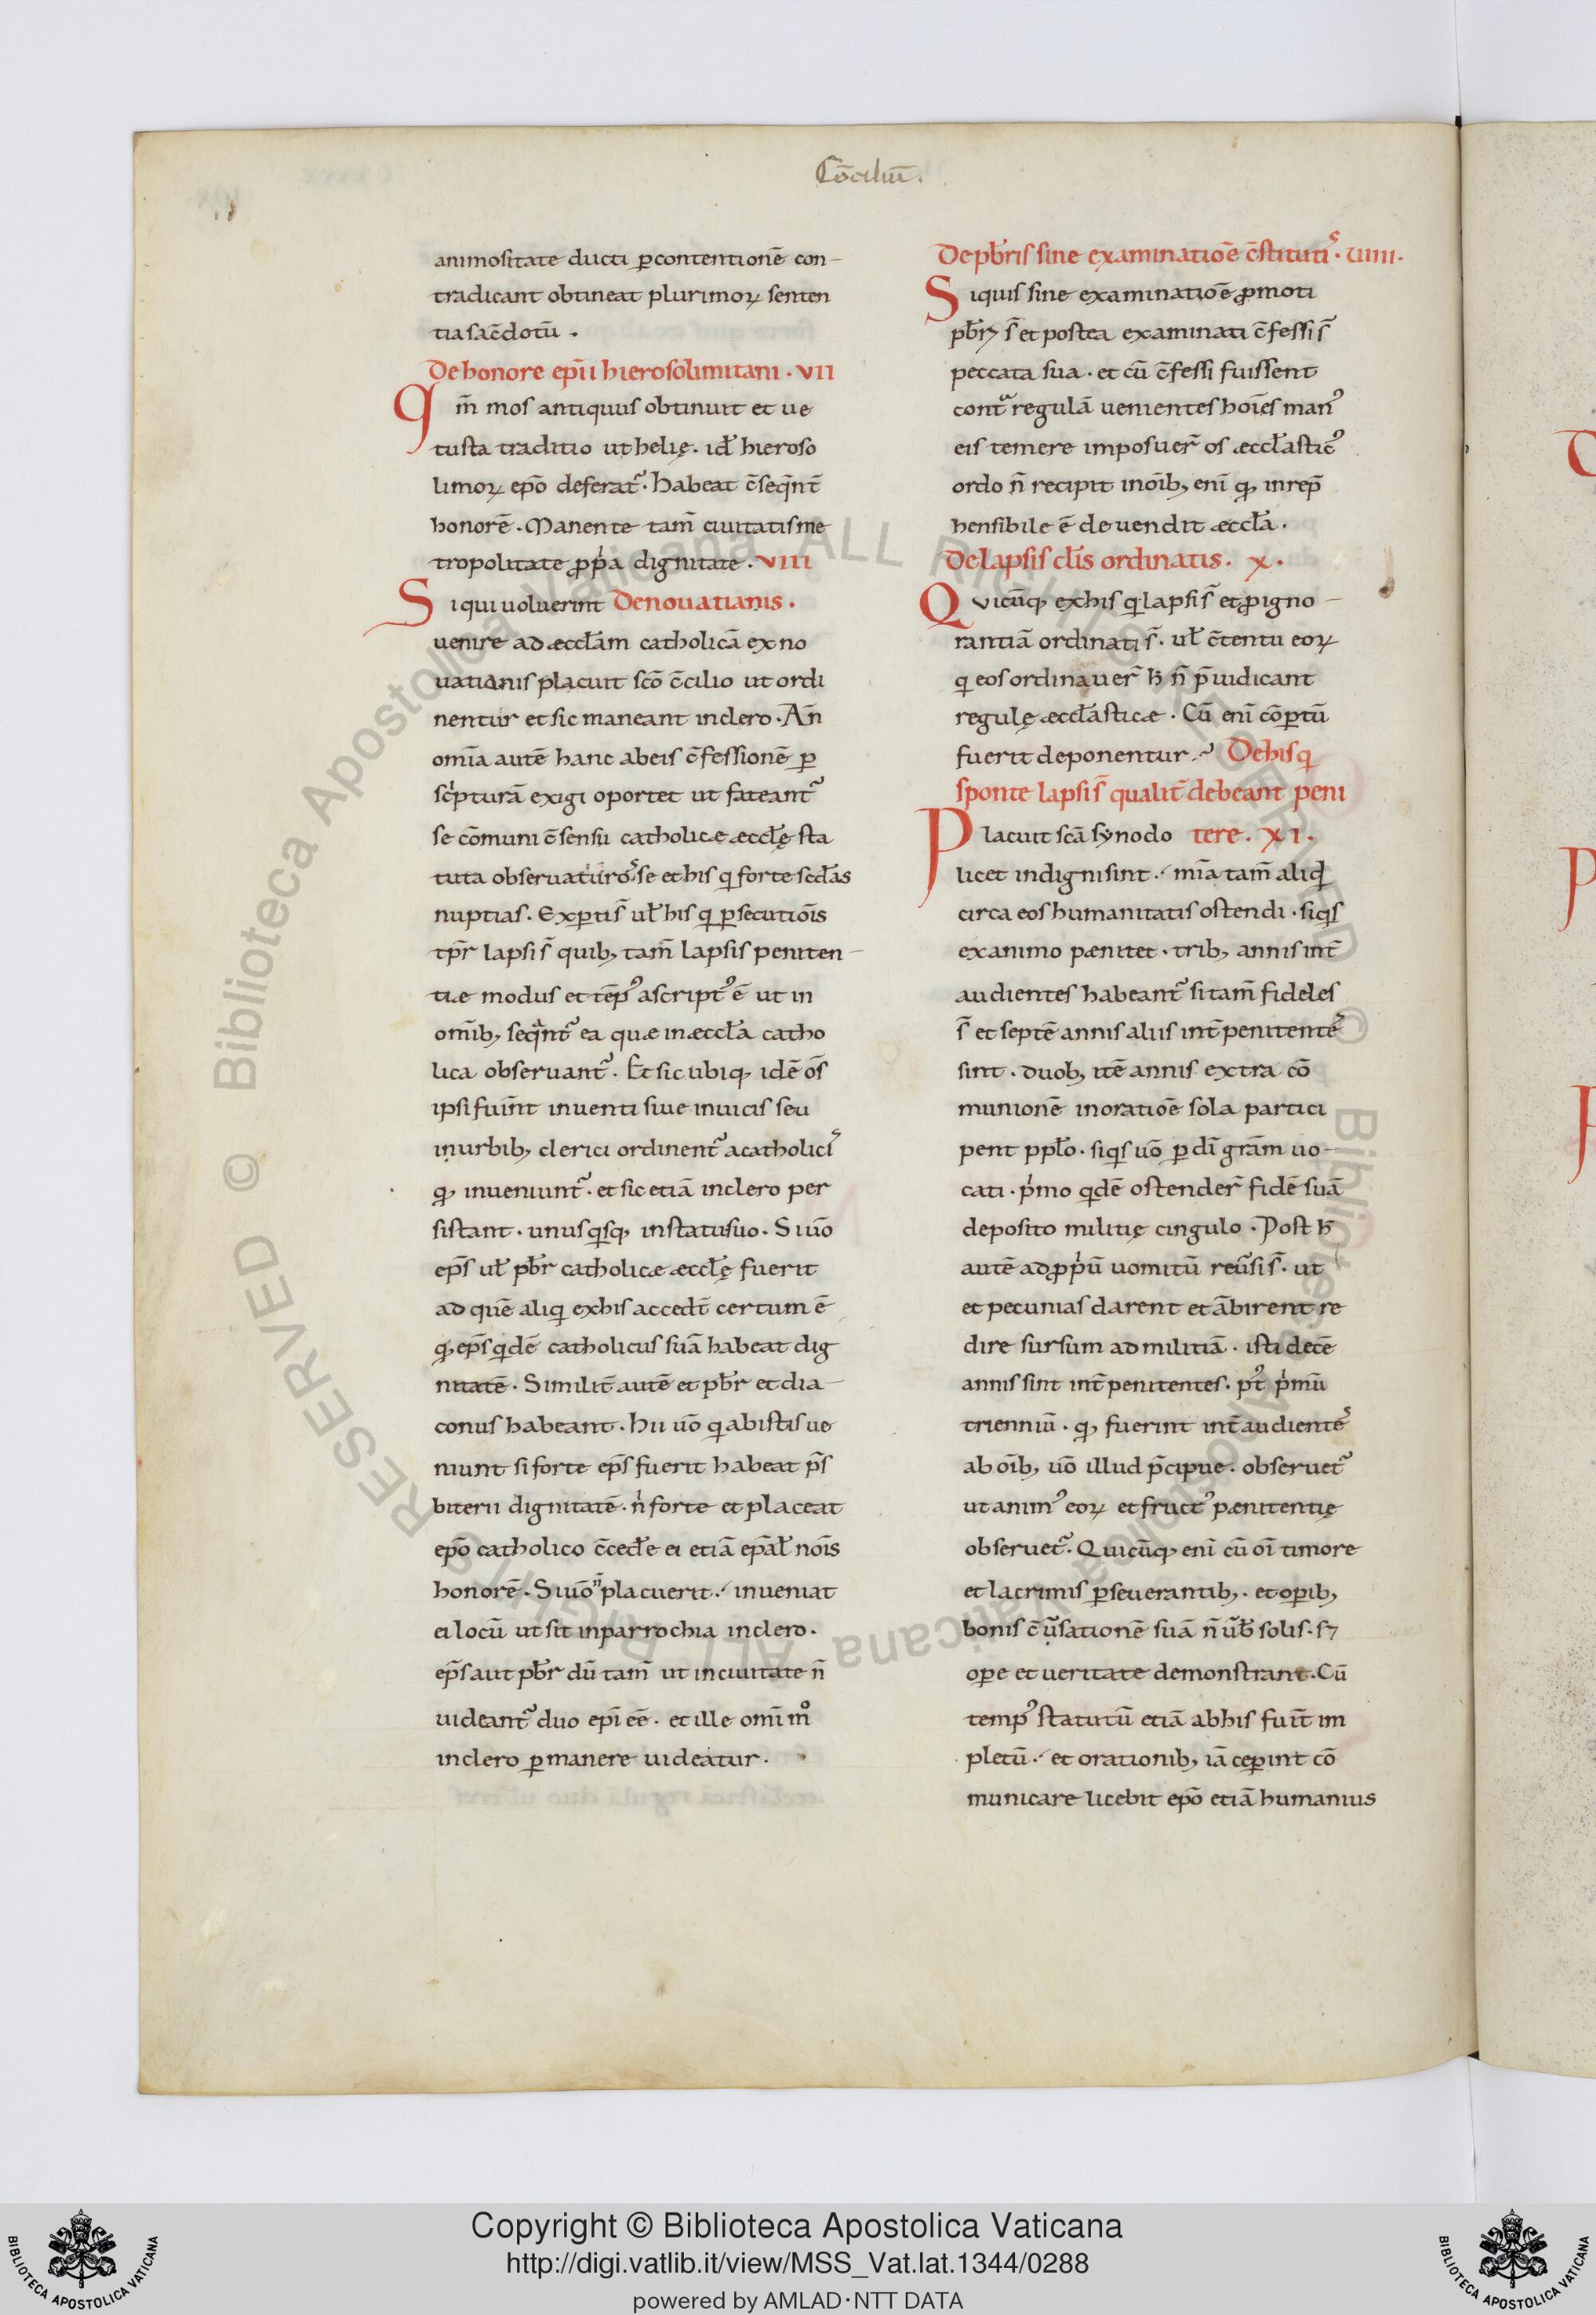 Cōciliū.
animositate ducti ꝑcontentionē con-
tradicant obtineat plurimoꝝ senten
tia sac̄dotū.
De honore ep̄ii hierosolimitani. VII
Qm̄ mos antiquus obtinuit et ue
tusta traditio ut helię. id ̄ hieroso
limoꝝ ep̄o deferat᷑. Habeat c̄seq̄nt̄
honorē. Manente tam̄ ciuitatis me
tropolitate ꝓpͥa dignitate. VIII
Si qui uoluerint De nouatianis.
uenire ad æccl̄am catholicā ex no
uatianis placuit sc̄o c̄cilio ut ordi
nentur et sic maneant in clero. An̄
omīa autē hanc ab eis c̄fessionē ꝑ
scͥpturā exigi oportet ut fateant᷑
se cōmuni c̄sensu catholicæ æccl̄ę sta
tuta obseruaturos se et his q̄ forte scd̄as
nuptias. Exꝑti s̄ ul̄ his q̄ ꝑsecutiōis
tp̄r lapsi s̄ quibꝫ tam̄ lapsis peniten-
tiæ modus et tēpꝰ ascriptꝰ ē ut in
omībꝫ seq̄nt᷑ ea quæ in æccl̄a catho
lica obseruant᷑. Et sic ubiqꝫ idē os̄
ipsi fuin̄t inuenti siue in uicis seu
in urbibꝫ clerici ordinent᷑ a catholicis
qꝫ inueniunt᷑. et sic etiā in clero per
sistant. unusqisqꝫ in statu suo. Si uō
ep̄s ul̄ pb̄r catholicæ æccl̄ę fuerit
ad quē aliqi ex his accedt̄ certum ē
qꝫ ep̄s qidē catholicus suā habeat dig
nitatē. Similit̄ autē et pb̄r et dia-
conus habeant. Hii uō qi ab istis ue
niunt si forte ep̄s fuerit habeat p̄s
biterii dignitatē. nͥ forte et placeat
ep̄o catholico c̄ced̄e ei etiā ep̄al̄ noīs
honorē. Si uō n̄ placuerit. inueniat
ei locū ut sit in parrochia in clero.
ep̄s aut pb̄r dū tam̄ ut in ciuitate n̄
uideant᷑ duo ep̄i eē. et ille omī mͦ
in clero ꝑmanere uideatur.
De pb̄ris sine examinatiōe c̄stitutis. VIIII.
Si quis sine examinatiōe ꝓmoti
pb̄rī s̄ et postea examinati c̄fessi s̄
peccata sua. et cū c̄fessi fuissent
contᷓ regulā uenientes hoīes manꝰ
eis temere imposuer̄ os æccl̄asticꝰ
ordo n̄ recipit in oībꝫ enī qꝫ inrep̄
hensibile ē devendit æccl̄a.
De lapsis cl̄is ordinatis. X.
Quicūqꝫ ex his qi lapsi s̄ et ꝓ igno-
rantiā ordinati s̄. ul̄ c̄tentu eoꝝ
qi eos ordinauer̄ h̄ n̄ p̄iudicant
regulę æccl̄asticæ. Cū enī cōꝑtū
fuerit deponentur. De his qi
sponte lapsi s̄ qualit̄ debeant peni
Placuit sc̄a sẏnodo tere. XI.
licet indigni sint. mīa tam̄ aliqd
circa eos humanitatis ostendi. si qis
ex animo pænitet. tribꝫ annis int̄
audientes habeant᷑ si tam̄ fideles
s̄ et septē annis aliis int̄ penitentes
sint. duobꝫ itē annis extra cō
munionē in oratiōe sola partici
pent ppl̄o. si qis uō ꝑ dī grām uo-
cati. pͥmo qidē ostender̄ fidē suā
deposito militię cingulo. Post h̄
autē ad ꝓpͥū uomitū reūsi s̄. ut
et pecunias darent et ābirent re
dire sursum ad militiā. isti decē
annis sint int̄ penitentes. pꝰt pͥmū
trienniū. qꝫ fuerint int̄ audientes
ab oībꝫ uō illud p̄cipue. obseruet᷑
ut animꝰ eoꝝ et fructꝰ pænitentię
obseruet᷑. Quicūqꝫ enī cū oī timore
et lacrimis ꝑseuerantibꝫ. et oꝑibꝫ
bonis c̄ūsationē suā n̄ ūb̄ solis. s7
oꝑe et ueritate demonstrant. Cū
tempꝰ statutū etiā ab his fuīt im
pletū. et orationibꝫ iā ceꝑint cō
municare licebit ep̄o etiā humanius
Copyright © Biblioteca Apostolica Vaticana
http://digi.vatlib.it/view/MSS_Vat.lat.1344/0288
powered by AMLAD·NTT DATA
© Biblioteca Apostolica Vaticana ALL RIGHTS RESERVED
BIBLIOTECA APOSTOLICA VATICANA
BIBLIOTECA APOSTOLICA VATICANA